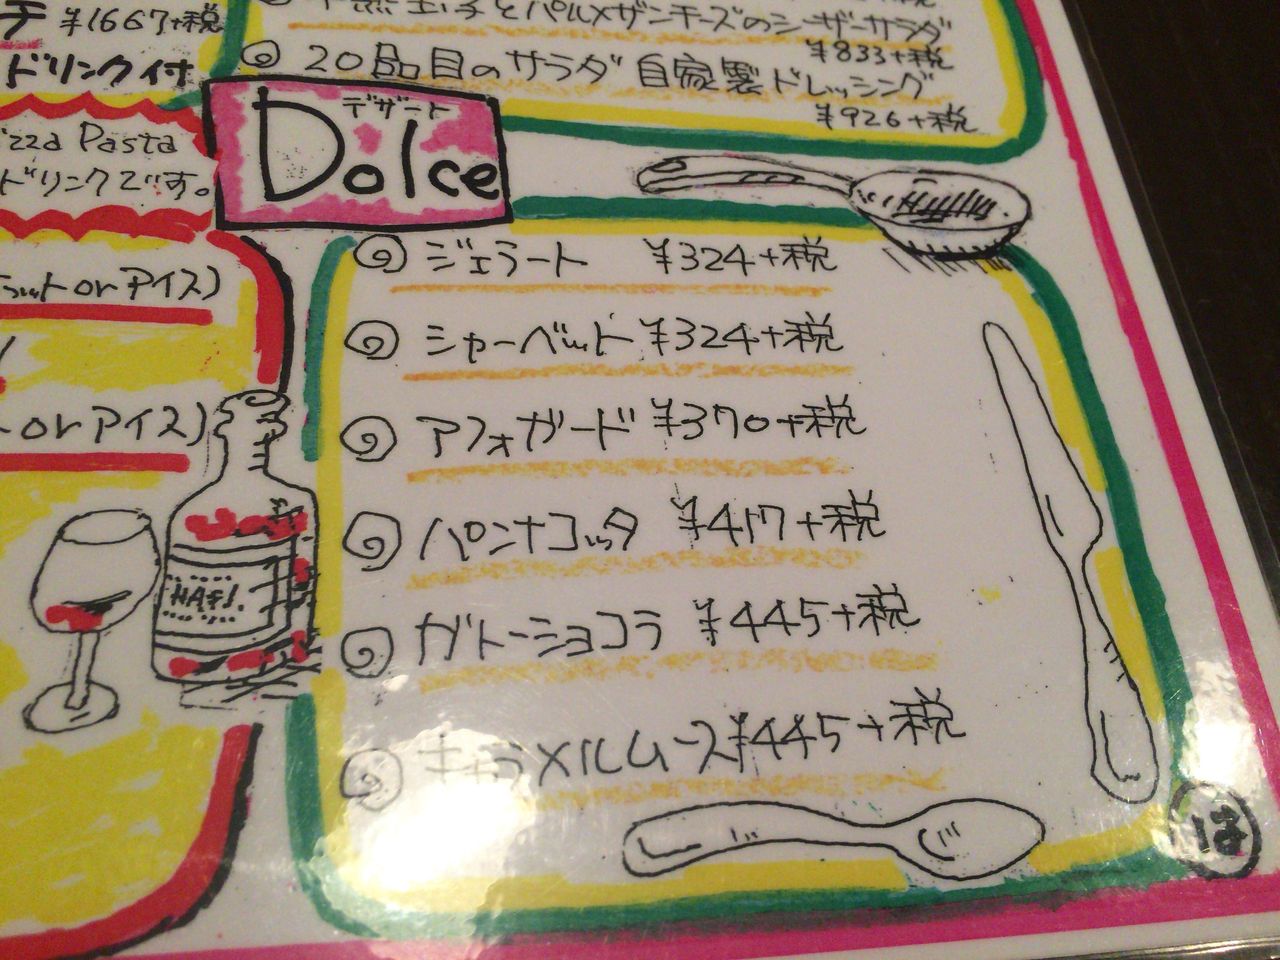 ¥1667+税
ドリンク付
zza Pasta
ドリンクです。
ラットorアイス)
orアイス)
子とパルメザンチーズのシーザーサラダ
¥833+税
20品目のサラダ 自家製ドレッシング
¥926+税
デザート
Dolce
ジェラート ¥324+税
シャーベット ¥324+税
アフォガード ¥370+税
パンナコッタ ¥417+税
ガトーショコラ ¥445+税
キャラメルムース ¥445+税
は